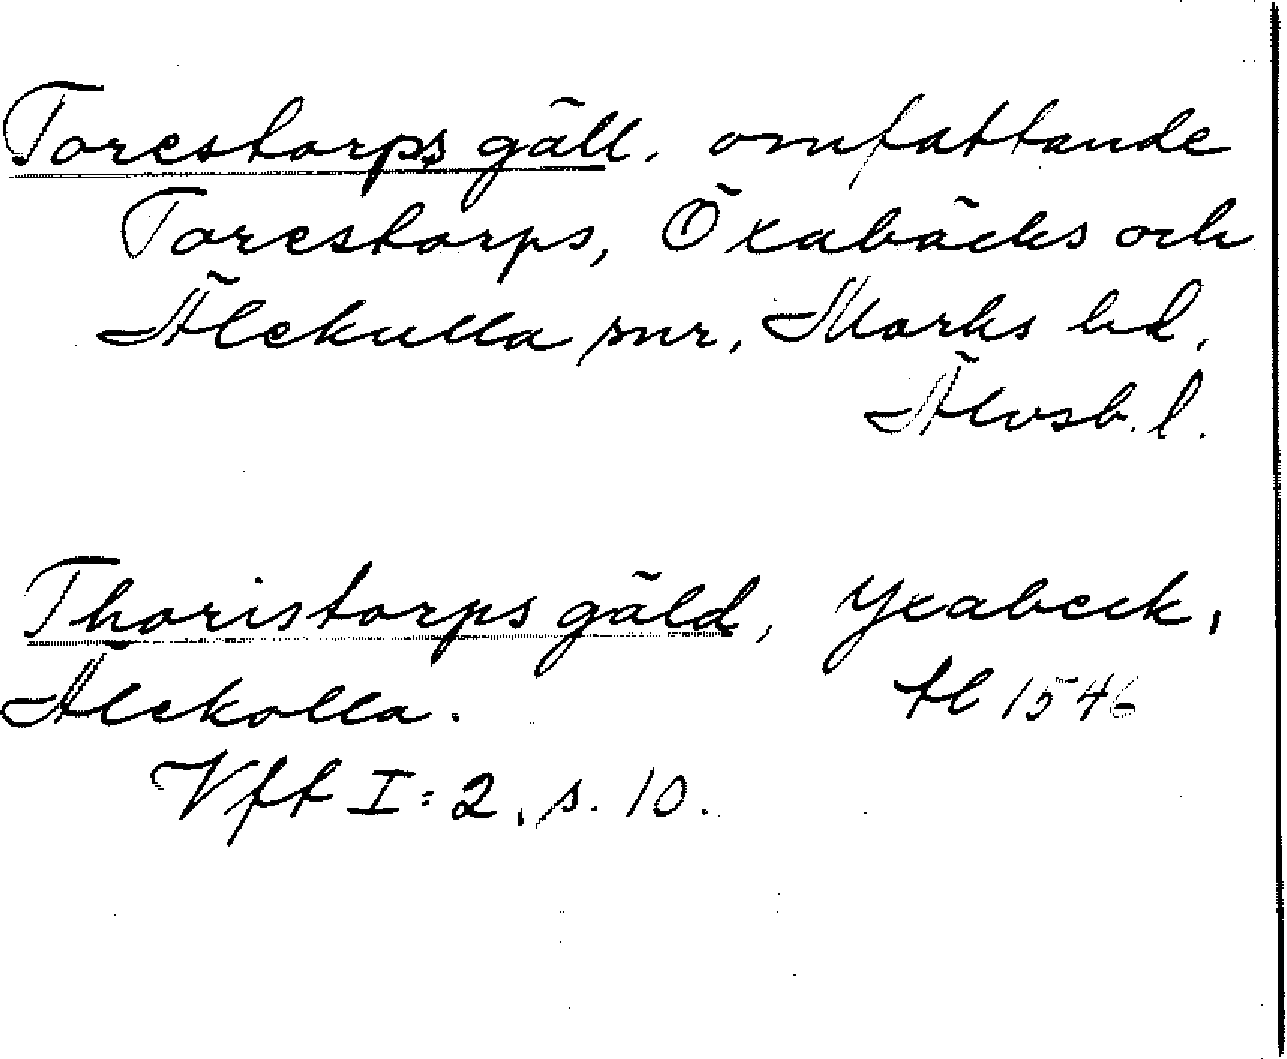 Torestorps gäll, omfattande
Torestorps, Öxabäcks och
Älekulla snr, Marks hd,
Älvsb. l.
Thoristorps gäld, Yxabeck,
Älekolla. tl 1546
Vft I:2, s. 10.